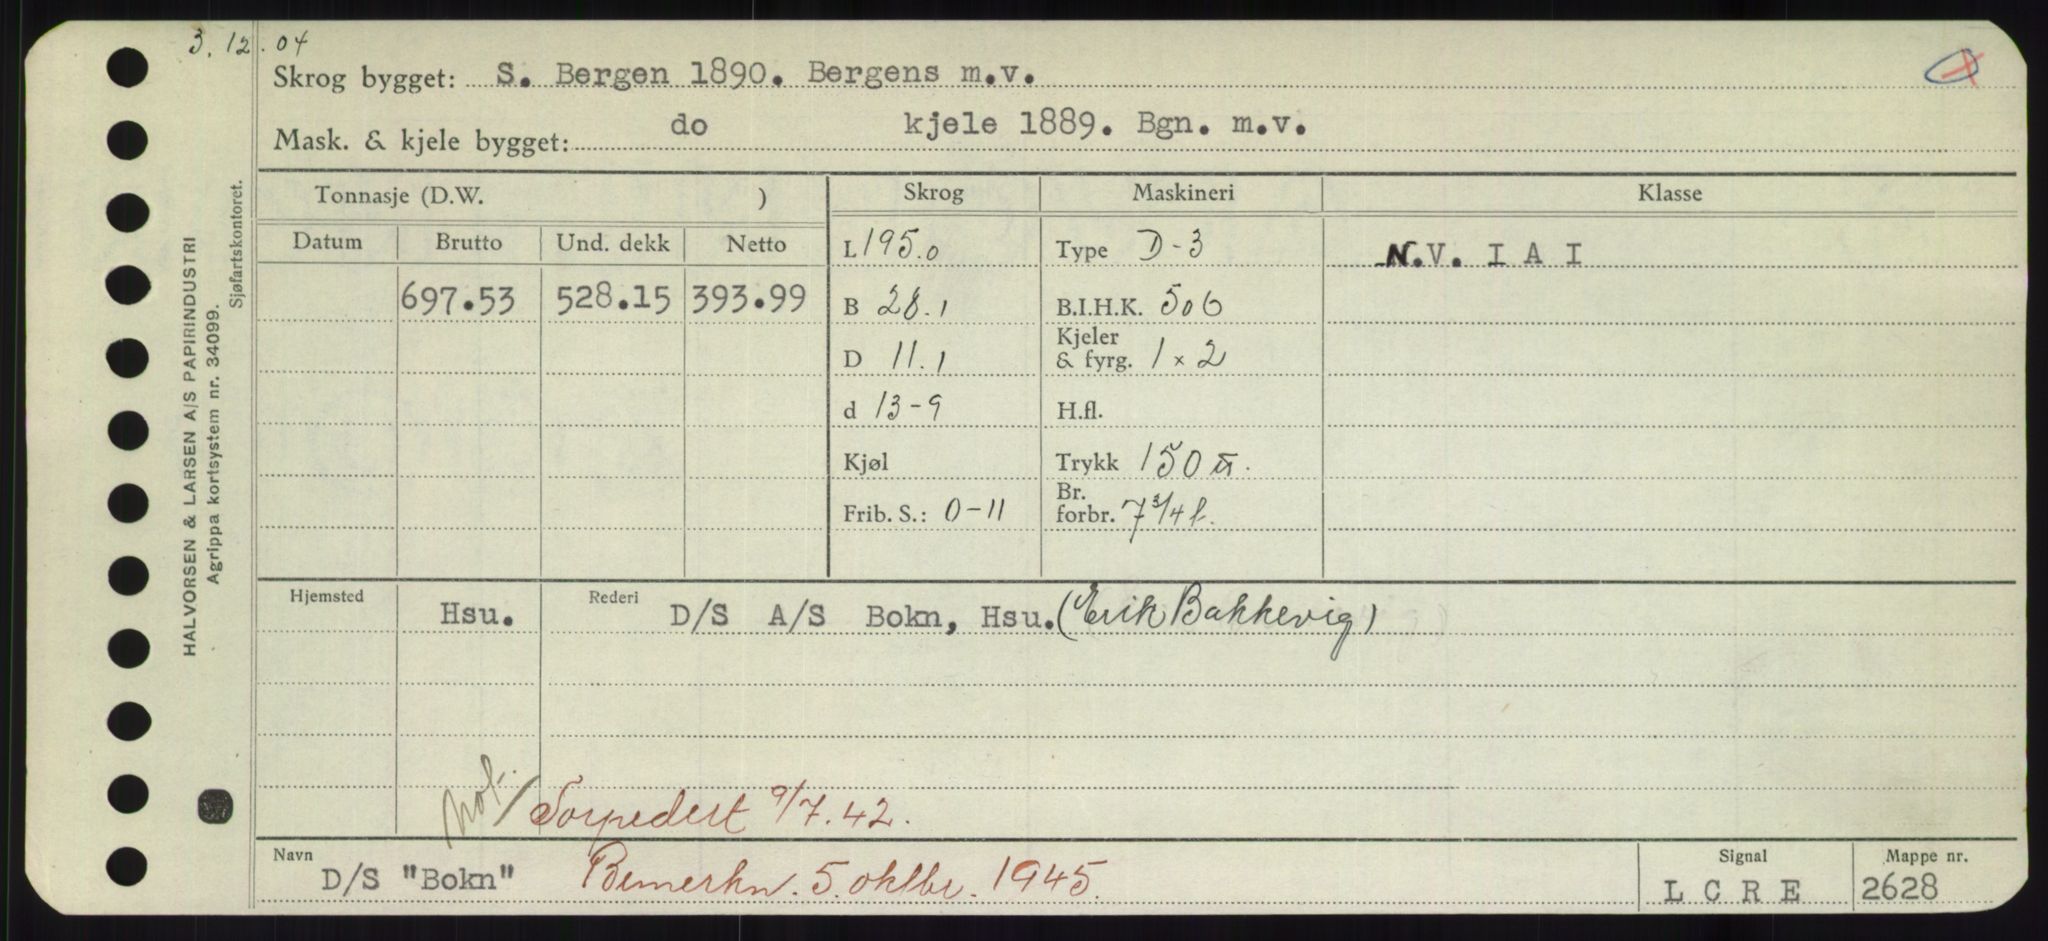 3.12.04
Skrog bygget: S. Bergen 1890. Bergens m.v.
Mask. & kjele bygget: do kjele 1889. Bgn. m.v.
Tonnasje (D.W. )
Skrog
Maskineri
Klasse
Datum
Brutto
Und. dekk
Netto
697.53
528.15
393.99
L 195.0
B 28.1
D 11.1
d 13-9
Kjøl
Frib. S.: 0-11
Type D-3
B.I.H.K. 506
Kjeler & fyrg. 1 x 2
H.fl.
Trykk 150 ℔.
Br. forbr. 7 3/4 t.
N.V. I A I
Hjemsted
Hsu.
Rederi
D/S A/S Bokn, Hsu. (Erik Bakkevig)
not. / Torpedert 9/7.42.
Navn
D/S "Bokn" Bemerkn. 5. oktbr. 1945.
Signal
L C R E
Mappe nr.
2628
HALVORSEN & LARSEN A/S PAPIRINDUSTRI
Agrippa kortsystem nr. 34099.
Sjøfartskontoret.